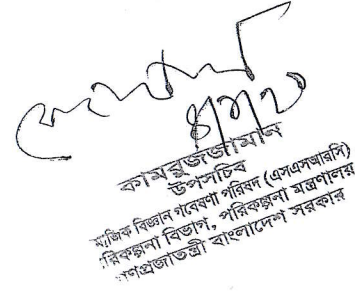 কামরুজজামান
উপসচিব
মাজিক বিজ্ঞান গবেষণা পরিষদ (এসএসআরসি)
রিকল্পনা বিভাগ, পরিকল্পনা মন্ত্রণালয়
গণপ্রজাতন্ত্রী বাংলাদেশ সরকার